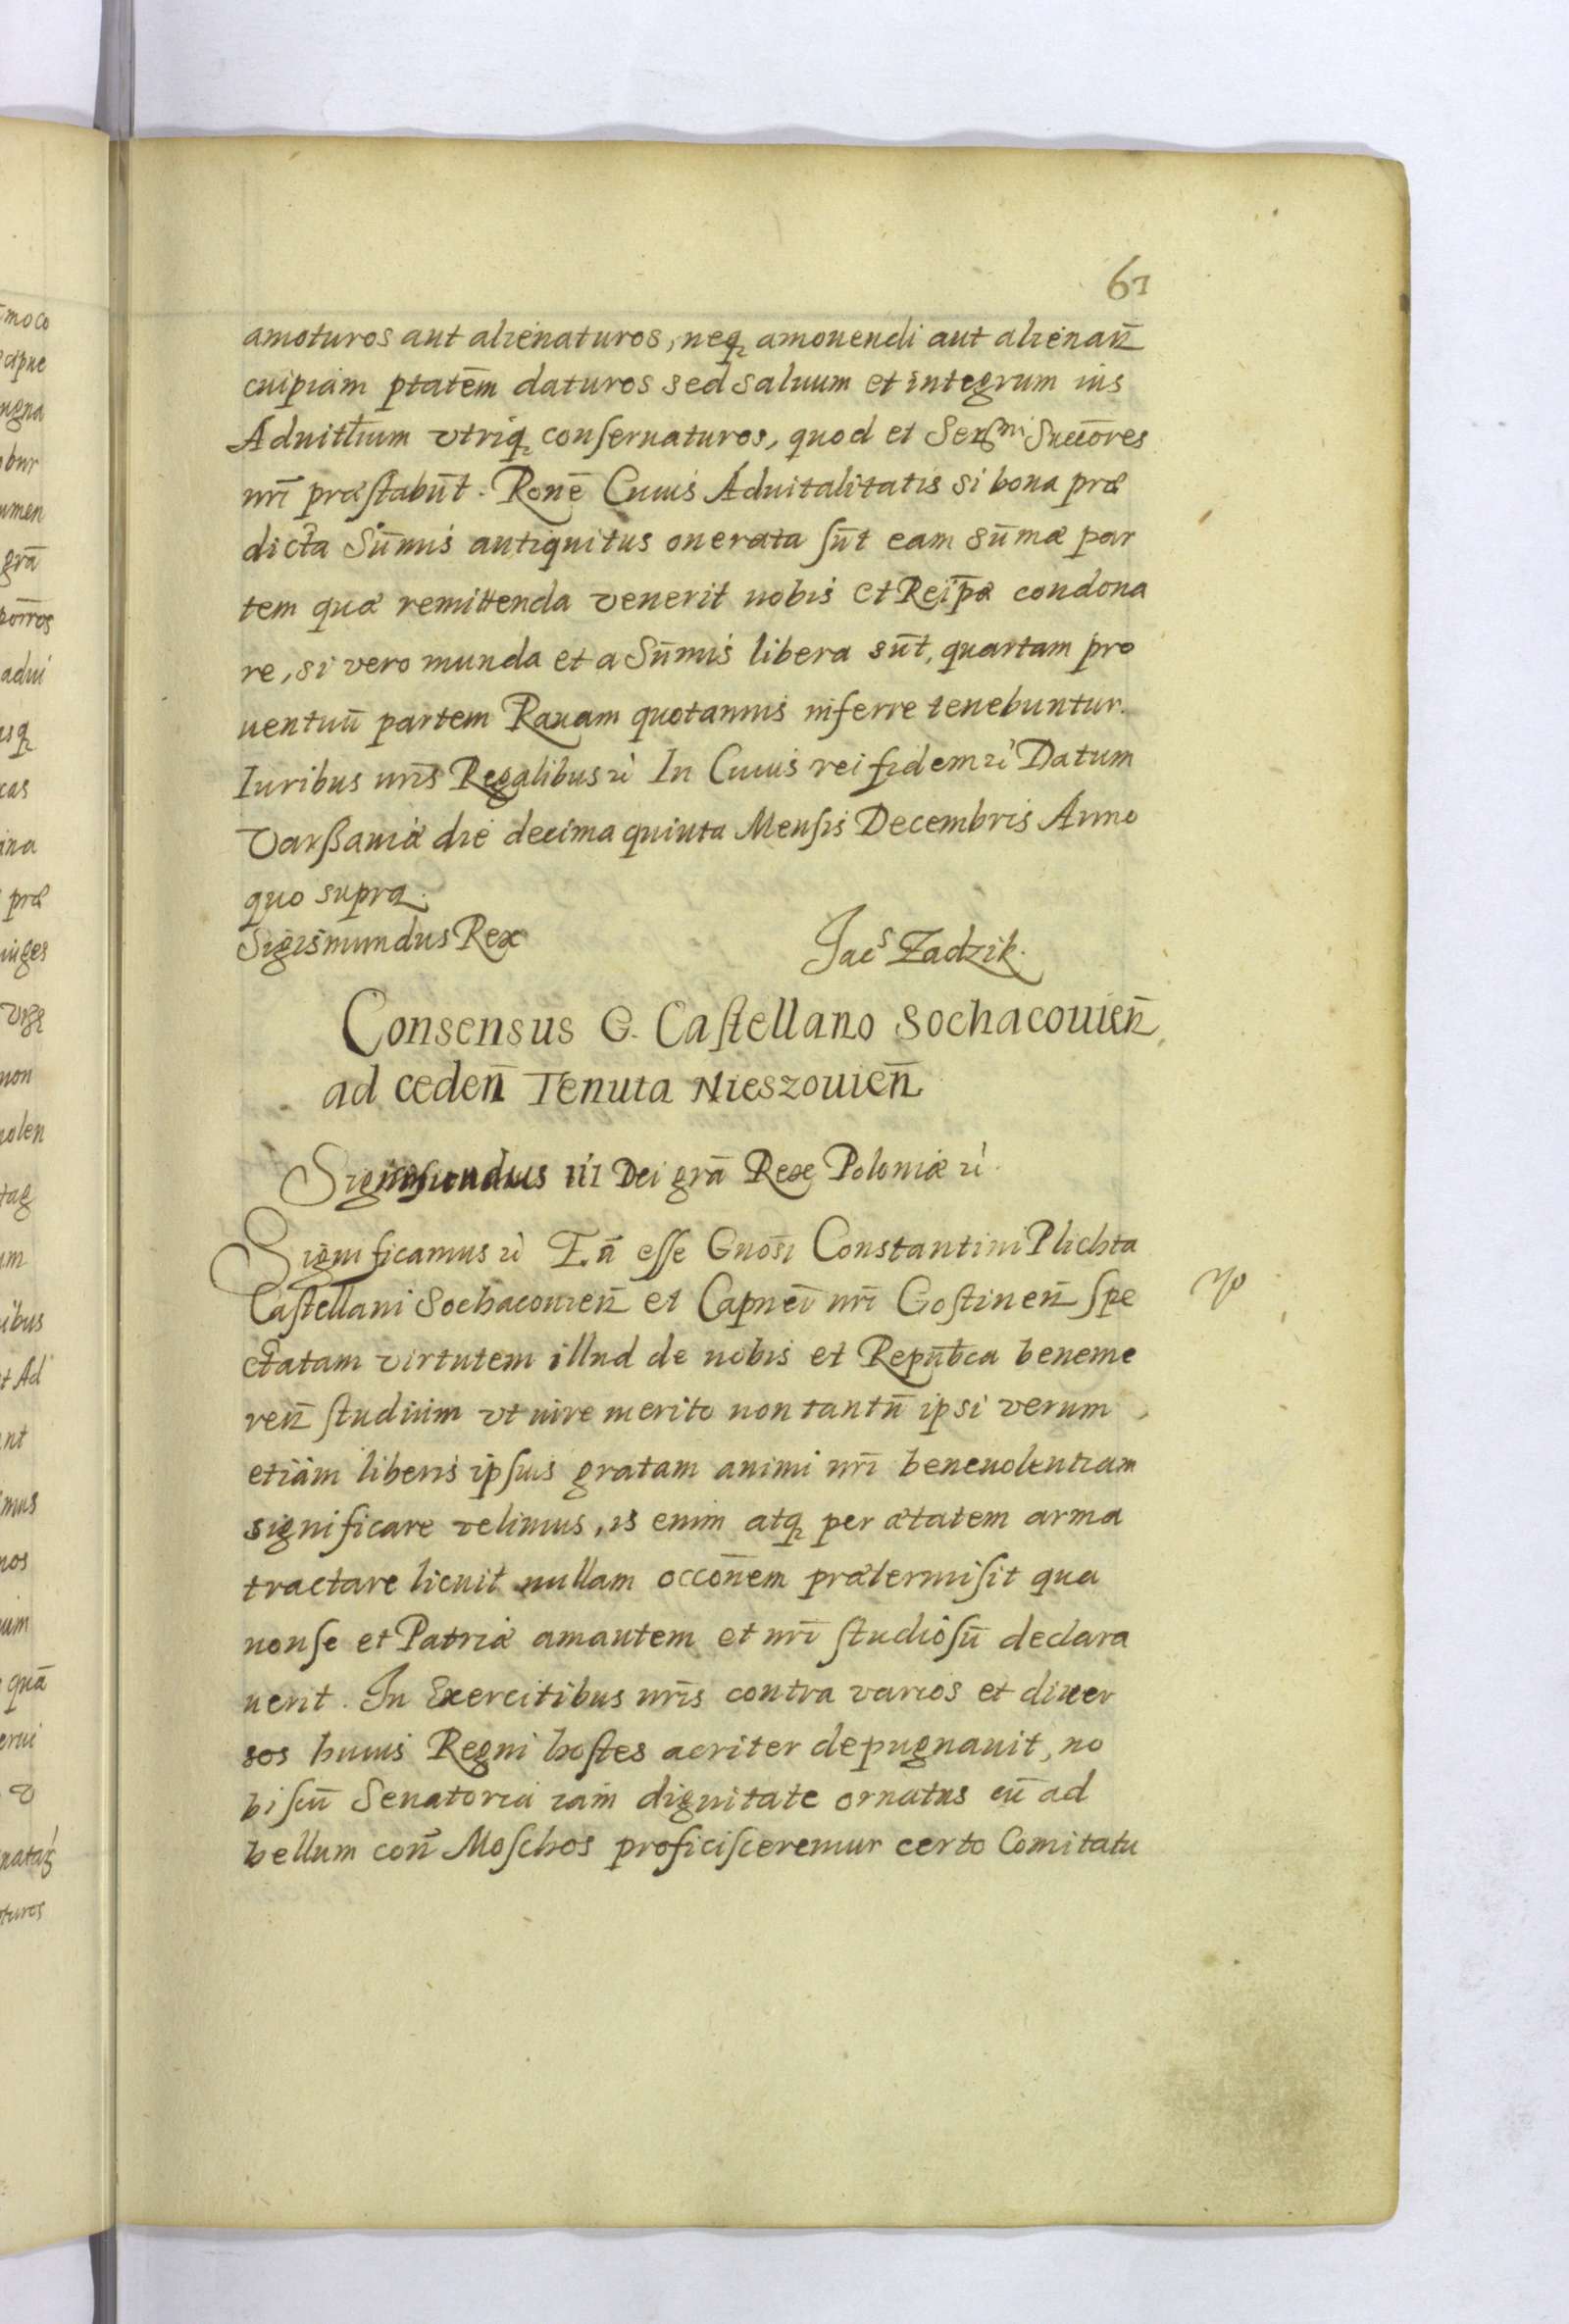 61
amoturos aut alienaturos, neq₃ amouendi aut alienan̄
cuipiam ptatēm daturos sed saluum et integrum ius
Aduitlium vtriq₃ conseruaturos, quod et Sermi Succōres
nrī præstabūt. Ronē Cuius Aduitalitatis si bona præ
dicta Sūmis antiquitus onerata sūt eam sūmæ par
tem quæ remittenda venerit nobis et Reipæ condona
re, si vero munda et a Sūmis libera sūt, quartam pro
uentuū partem Rauam quotannis inferre tenebuntur.
Iuribus nrīs Regalibus zc̀ In Cuius rei fidem zc̀ Datum
Varßauiæ die decima quinta Mensis Decembris Anno
quo supra.
Sigismundus Rex
Jacs Zadzik.
Consensus G. Castellano Sochacouien̄
ad ceden̄ Tenuta Nieszouien̄
Sigismundus III Dei grā Rex Poloniæ zc̀.
Significamus zc̀ Eā esse Gnosī Constantini Plichta
Castellani Sochacouien̄ et Capneī nrī Gostinen̄ spe
ctatam virtutem illud de nobis et Repūbca beneme
ren̄ studium vt iure merito non tantū ipsi verum
etiam liberis ipsius gratam animi nrī beneuolentiam
significare velimus, is enim atq₃ per ætatem arma
tractare licuit nullam occōnem prætermisit qua
non se et Patriæ amantem et nrī studiosū declara
uerit. In Exercitibus nrīs contra varios et diuer
sos huius Regni hostes acriter depugnauit, no
biscū Senatoria iam dignitate ornatus cū ad
bellum con̄ Moschos proficisceremur certo Comitatu